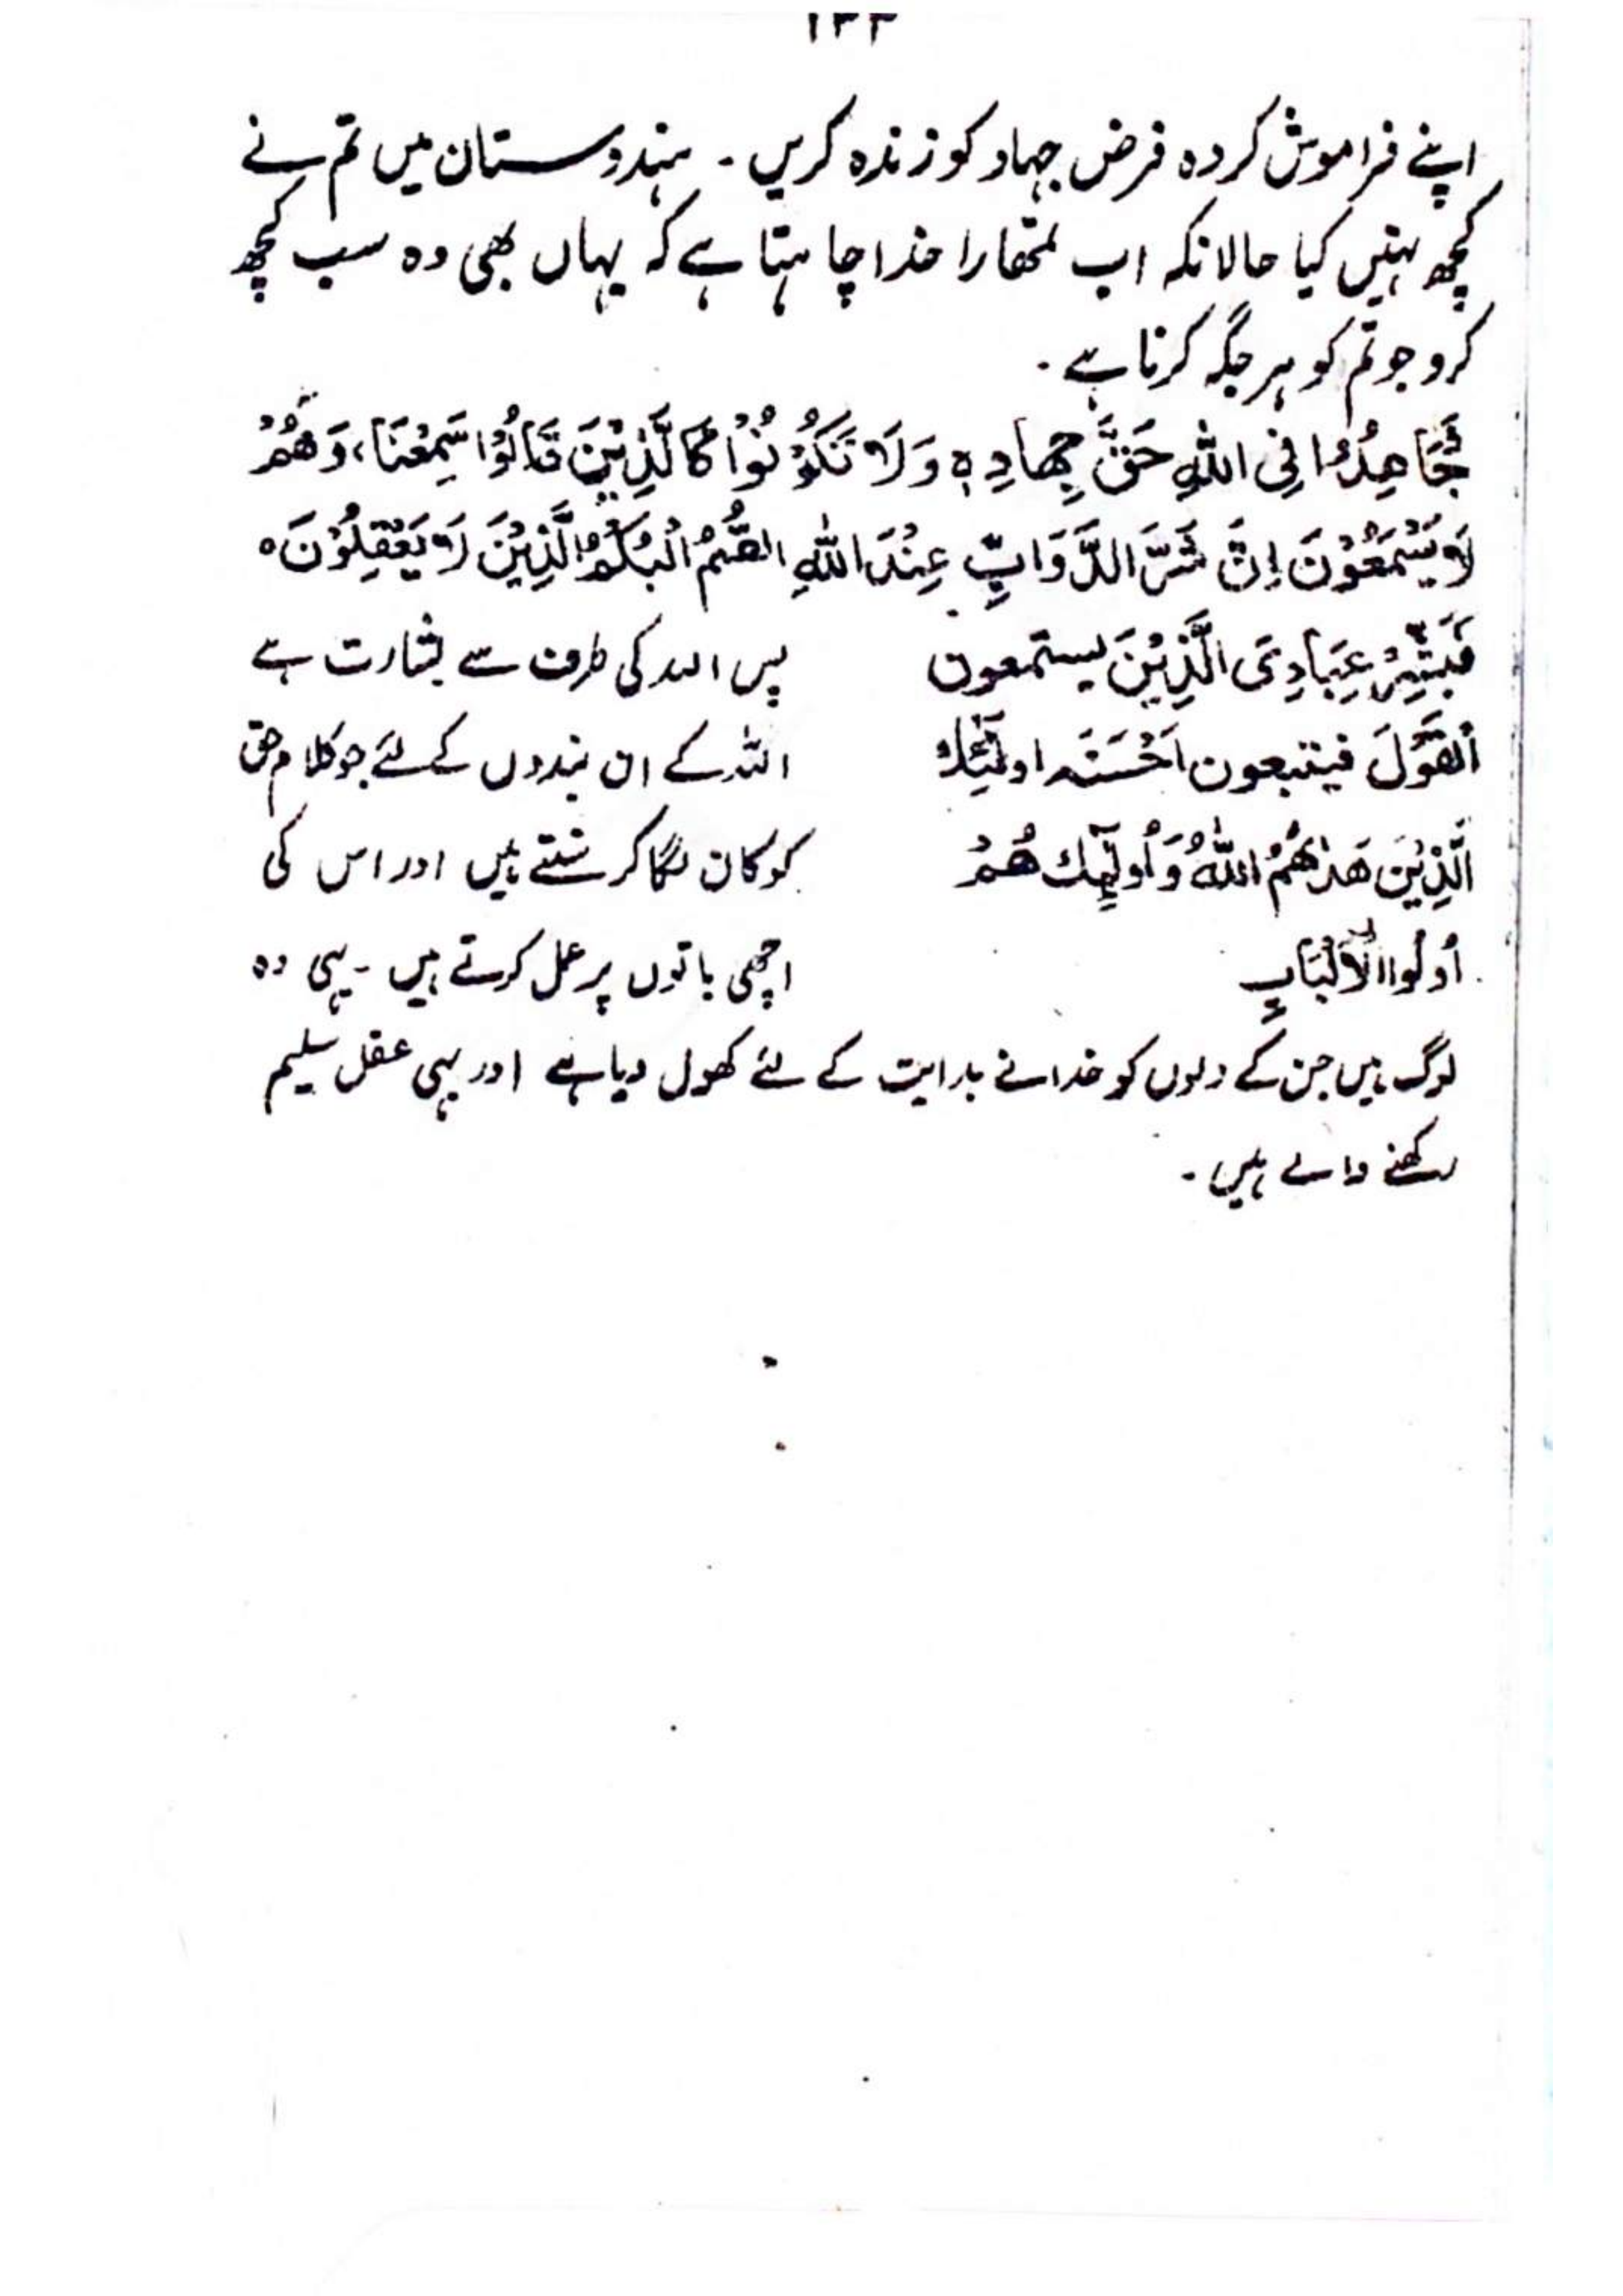 ۱۳۳
اپنے فراموش کردہ فرض جہاد کو زندہ کریں ۔ ہندوستان میں تم نے
کچھ نہیں کیا حالانکہ اب تمھارا خدا چاہتا ہے کہ یہاں بھی وہ سب کچھ
کرو جو تم کو ہر جگہ کرنا ہے ۔
فَجَاهِدُوْا فِی اللّٰهِ حَقَّ جِهادِهٖ وَلَا تَكُوْنُوْا كَالَّذِیْنَ قَالُوْا سَمِعْنَا، وَهُمْ
لَا یَسْمَعُوْنَ اِنَّ شَرَّ الدَّوَابِّ عِنْدَ اللّٰهِ الصُّمُّ الْبُكْمُ الَّذِیْنَ لَا یَعْقِلُوْنَ ہ
فَبَشِّرْ عِبَادِیَ الَّذِیْنَ یستمعون
اَلْقَوْلَ فیتبعون اَحْسَنَہ اولٰٓئِكَ
الَّذِیْنَ هَدٰهُمُ اللّٰهُ وَاُولٰٓئِك هُمْ
اُولُوا الْاَلْبَابِ
پس اللہ کی طرف سے بشارت ہے
اللہ کے ان بندوں کے لئے جو کلام حق
کو کان لگا کر سنتے ہیں اور اس کی
اچھی باتوں پر عمل کرتے ہیں ۔ یہی وہ
لوگ ہیں جن کے دلوں کو خدا نے ہدایت کے لئے کھول دیا ہے اور یہی عقل سلیم
رکھنے والے ہیں ۔